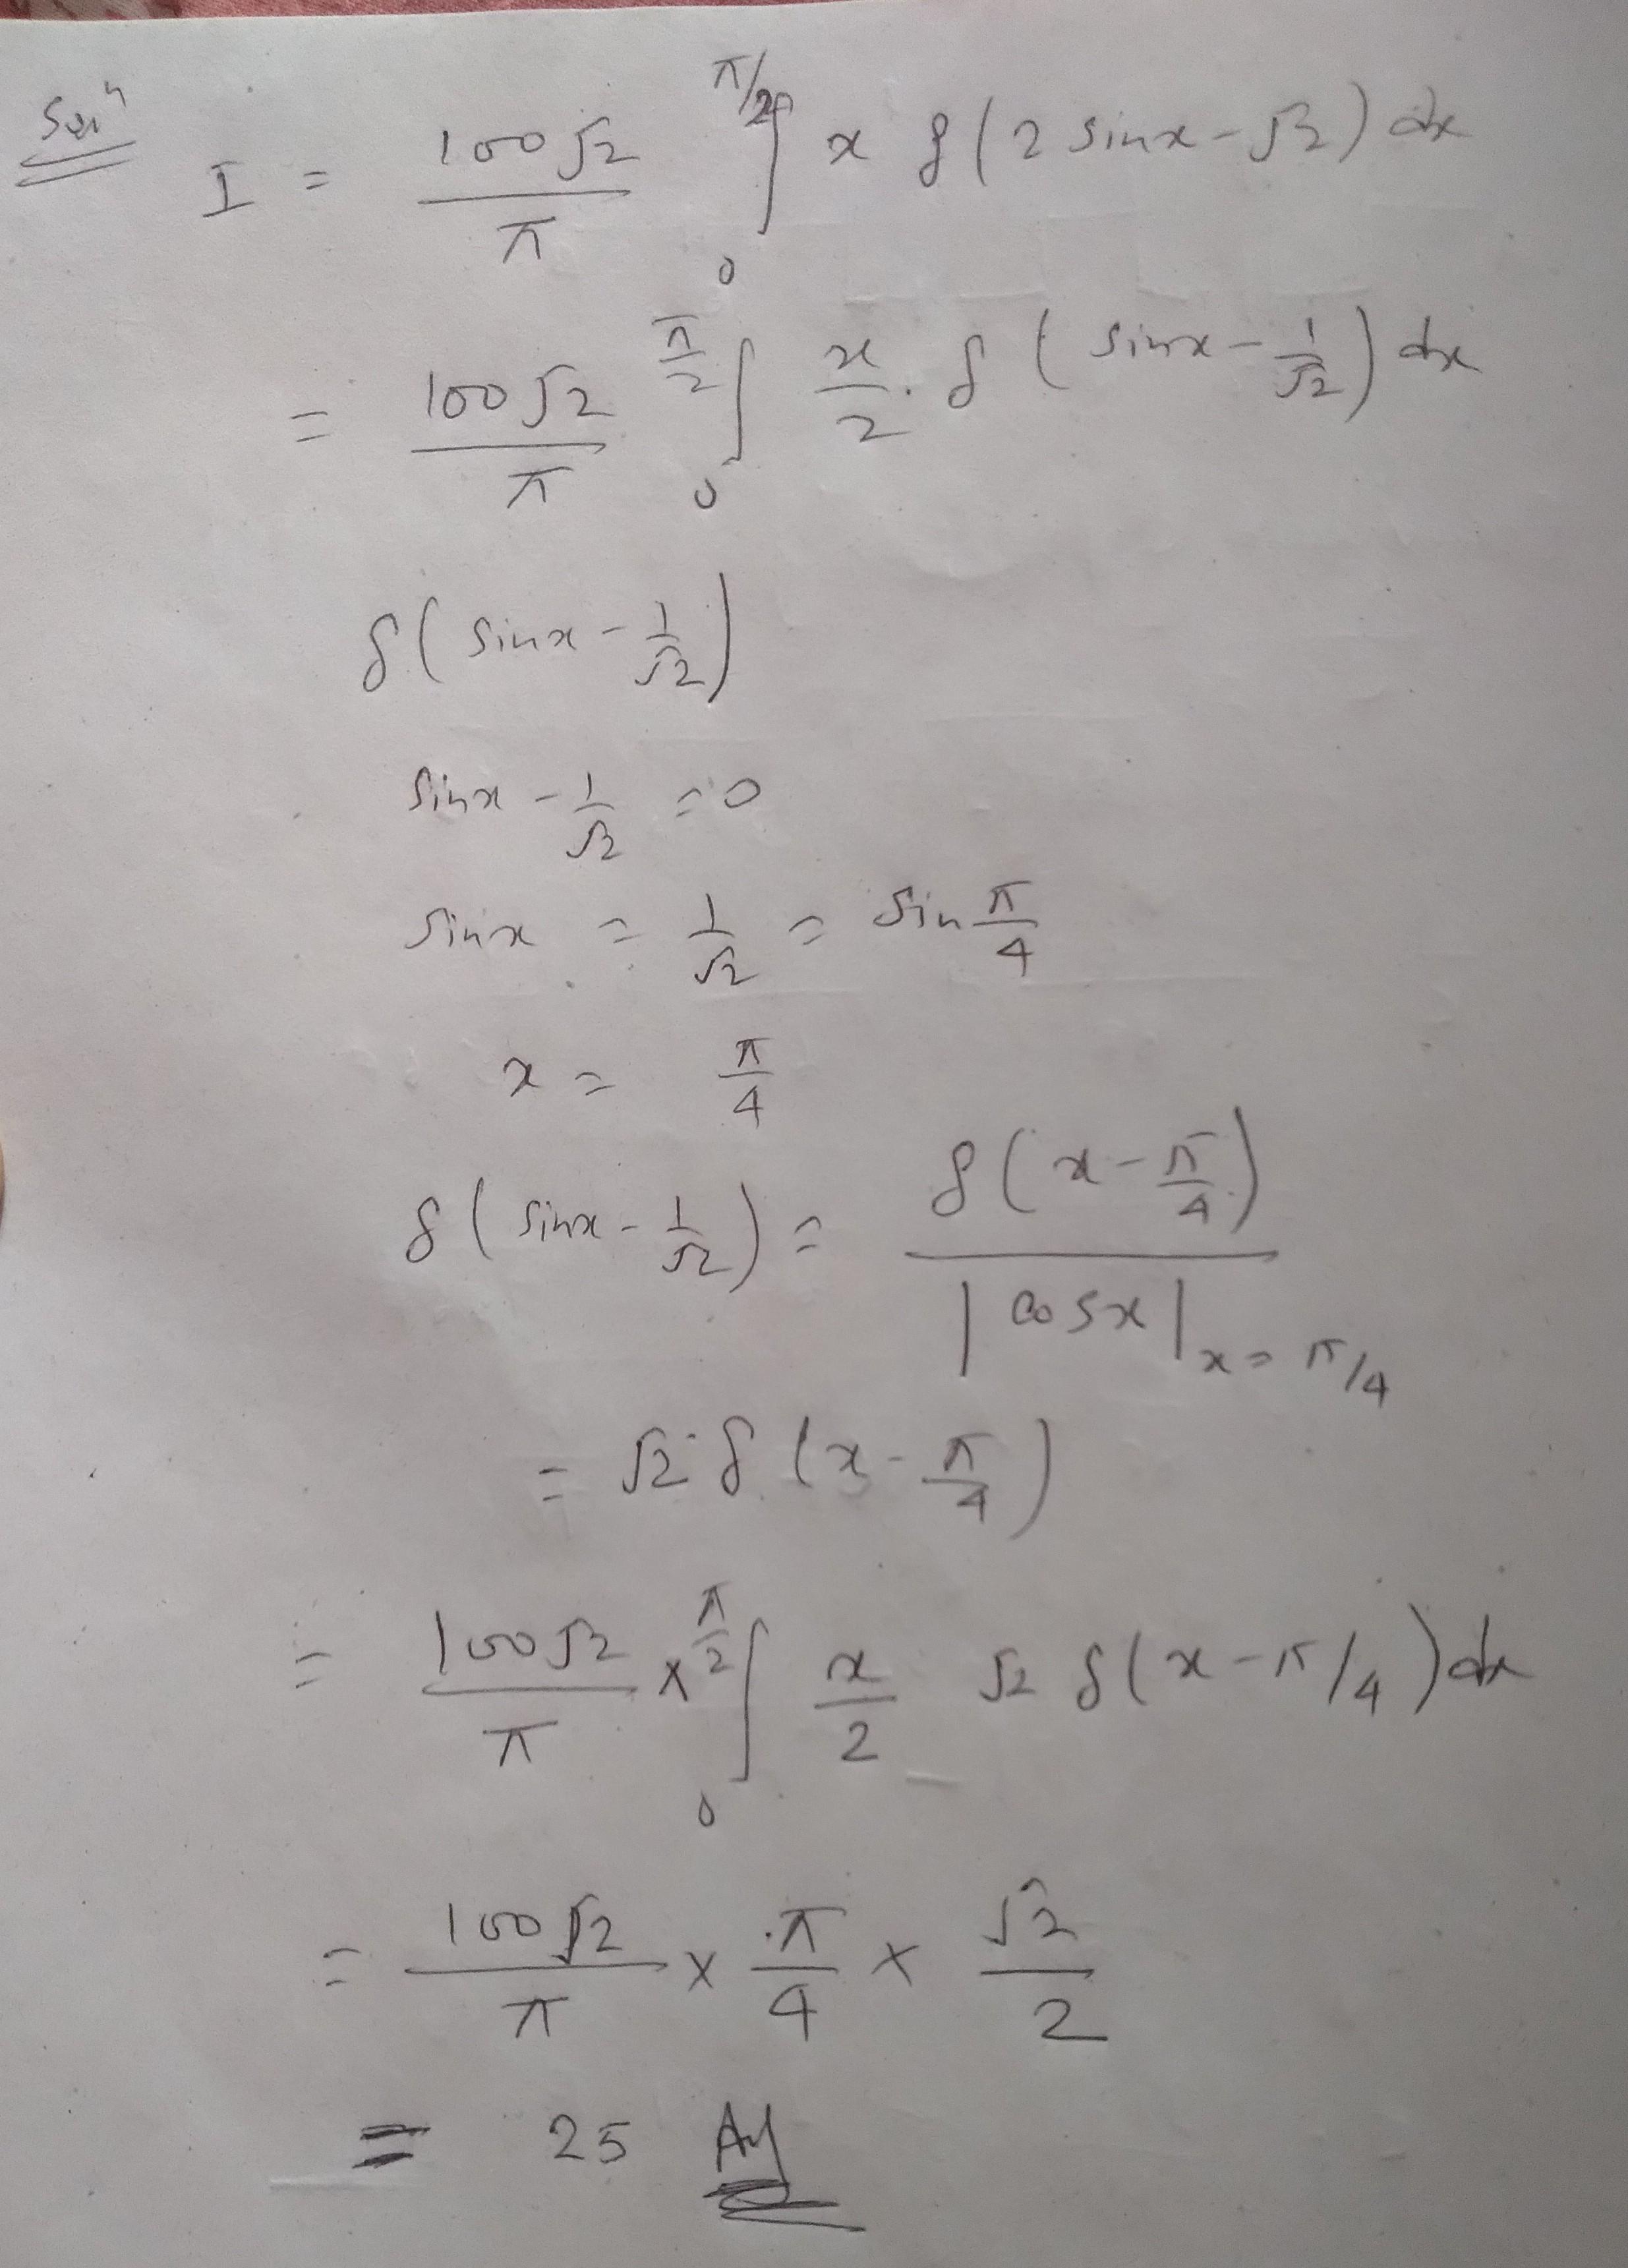 Solⁿ
I = 100√2/π ∫₀^{π/2} x δ(2 sinx - √2) dx
= 100√2/π ∫₀^{π/2} x/2 . δ(sinx - 1/√2) dx
δ(sinx - 1/√2)
sinx - 1/√2 = 0
sinx = 1/√2 = sin π/4
x = π/4
δ(sinx - 1/√2) = δ(x - π/4) / |cosx|_{x = π/4}
= √2 δ(x - π/4)
= 100√2/π × ∫₀^{π/2} x/2 √2 δ(x - π/4) dx
= 100√2/π × π/4 × √2/2
= 25 Ay